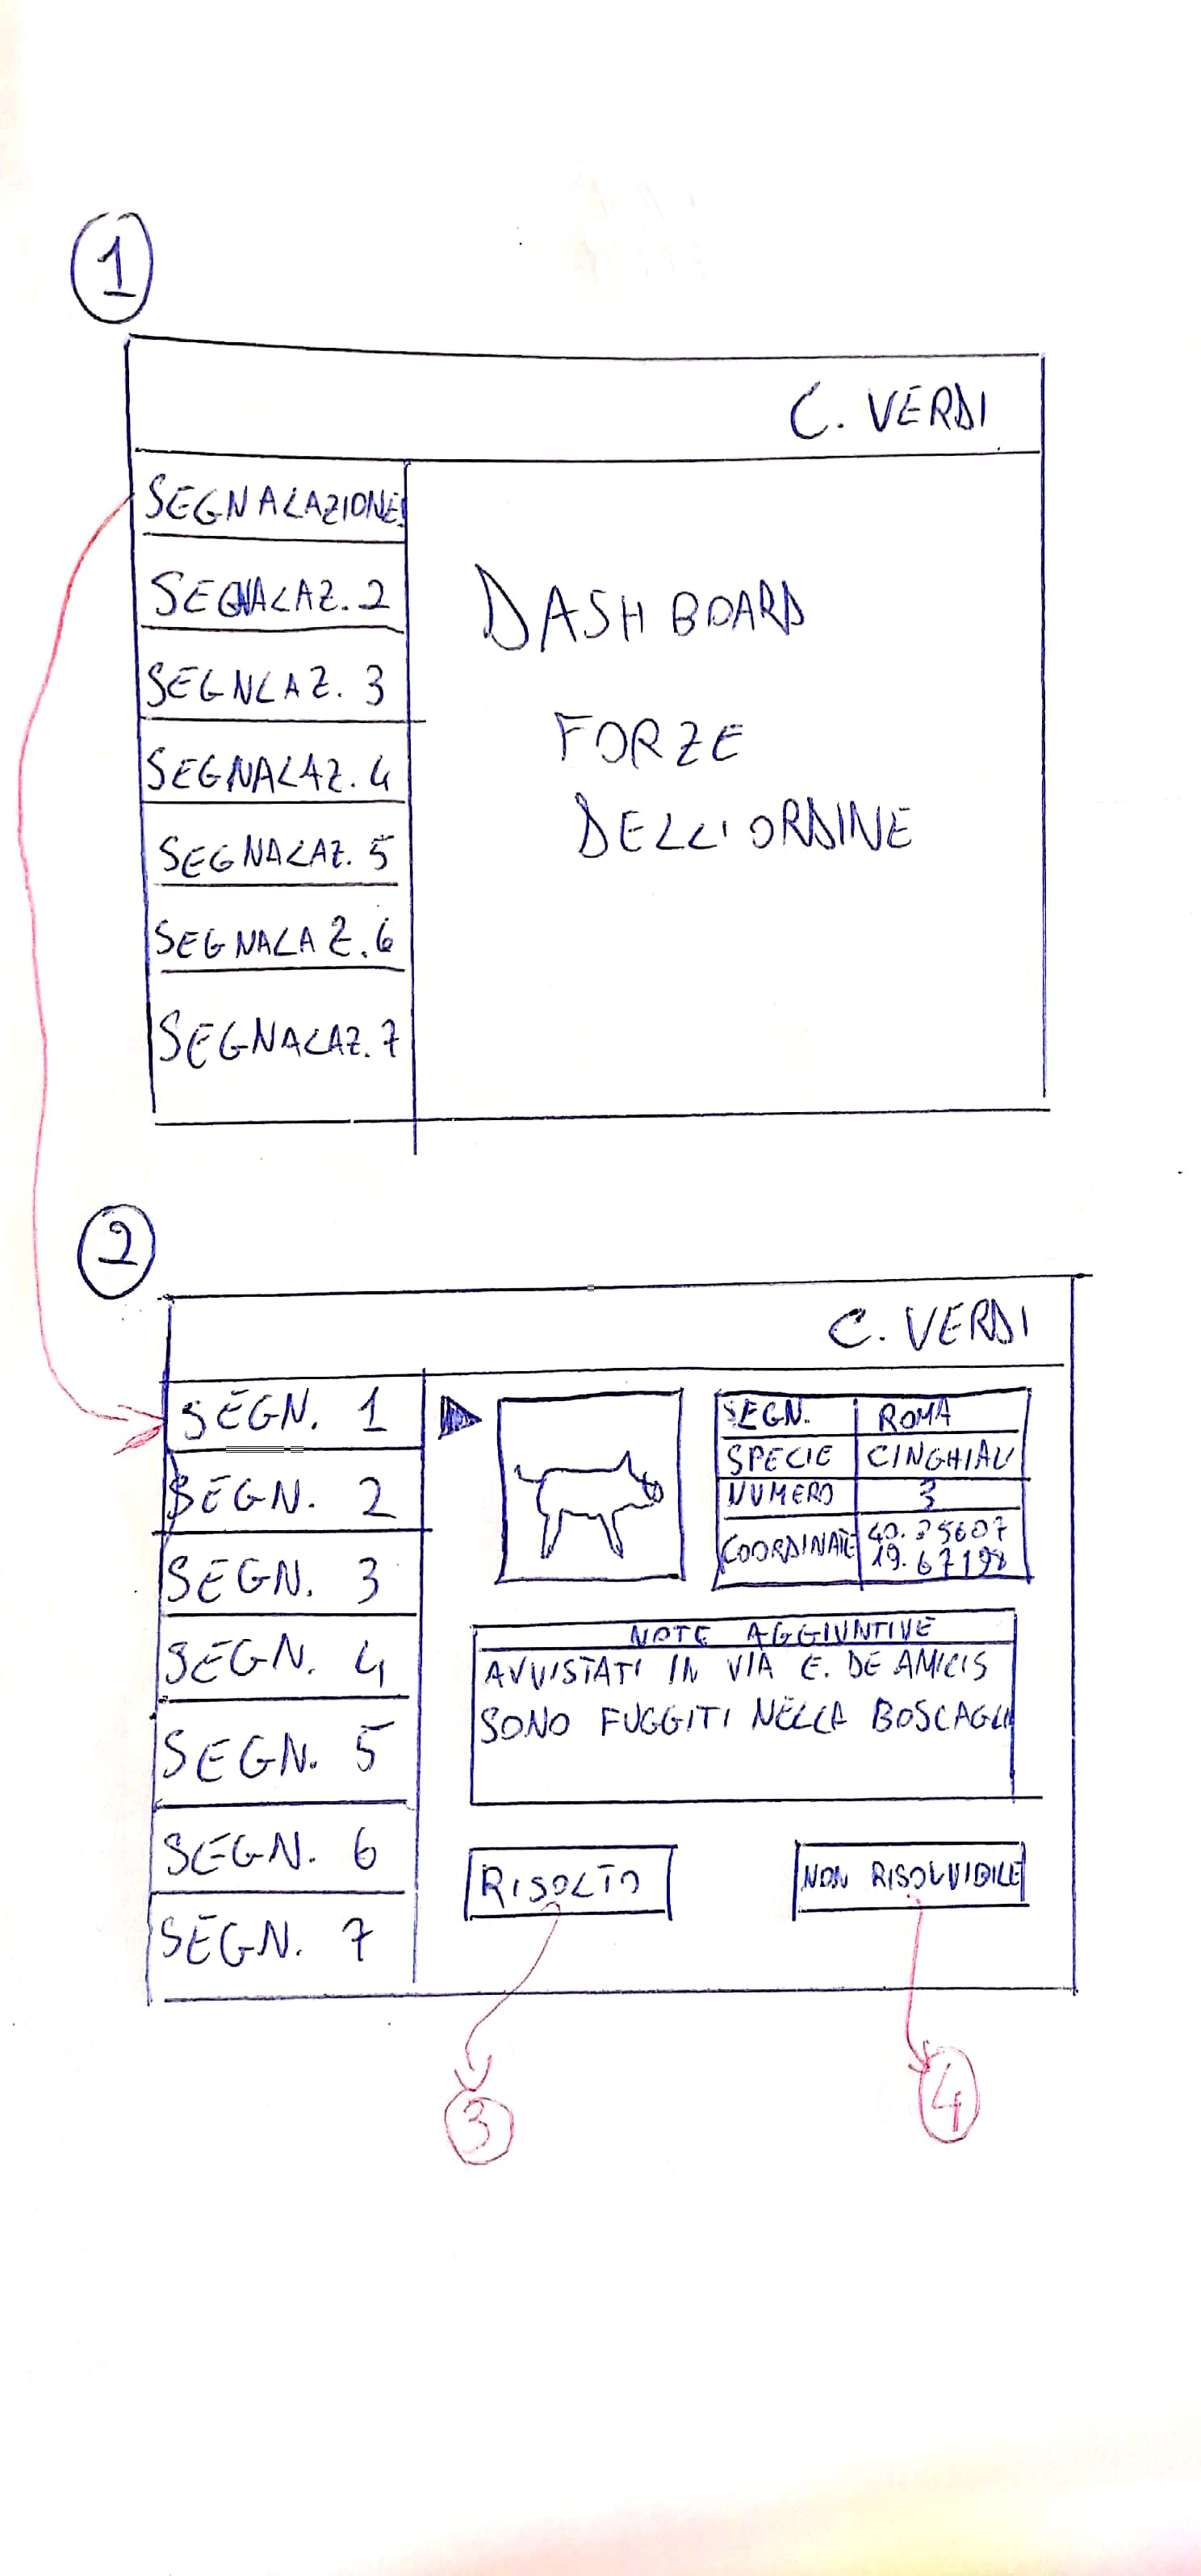 1
C. VERDI
SEGNALAZIONE1
SEGNALAZ. 2
SEGNLAZ. 3
SEGNALAZ. 4
SEGNALAZ. 5
SEGNALAZ. 6
SEGNALAZ. 7
DASHBOARD
FORZE
DELL'ORDINE
2
C. VERDI
SEGN. 1
SEGN. 2
SEGN. 3
SEGN. 4
SEGN. 5
SEGN. 6
SEGN. 7
SEGN. ROMA
SPECIE CINGHIALI
NUMERO 3
COORDINATE
19.67198
NOTE AGGIUNTIVE
AVVISTATI IN VIA E. DE AMICIS
SONO FUGGITI NELLA BOSCAGLIA
RISOLTO
NON RISOLVIBILE
3
4